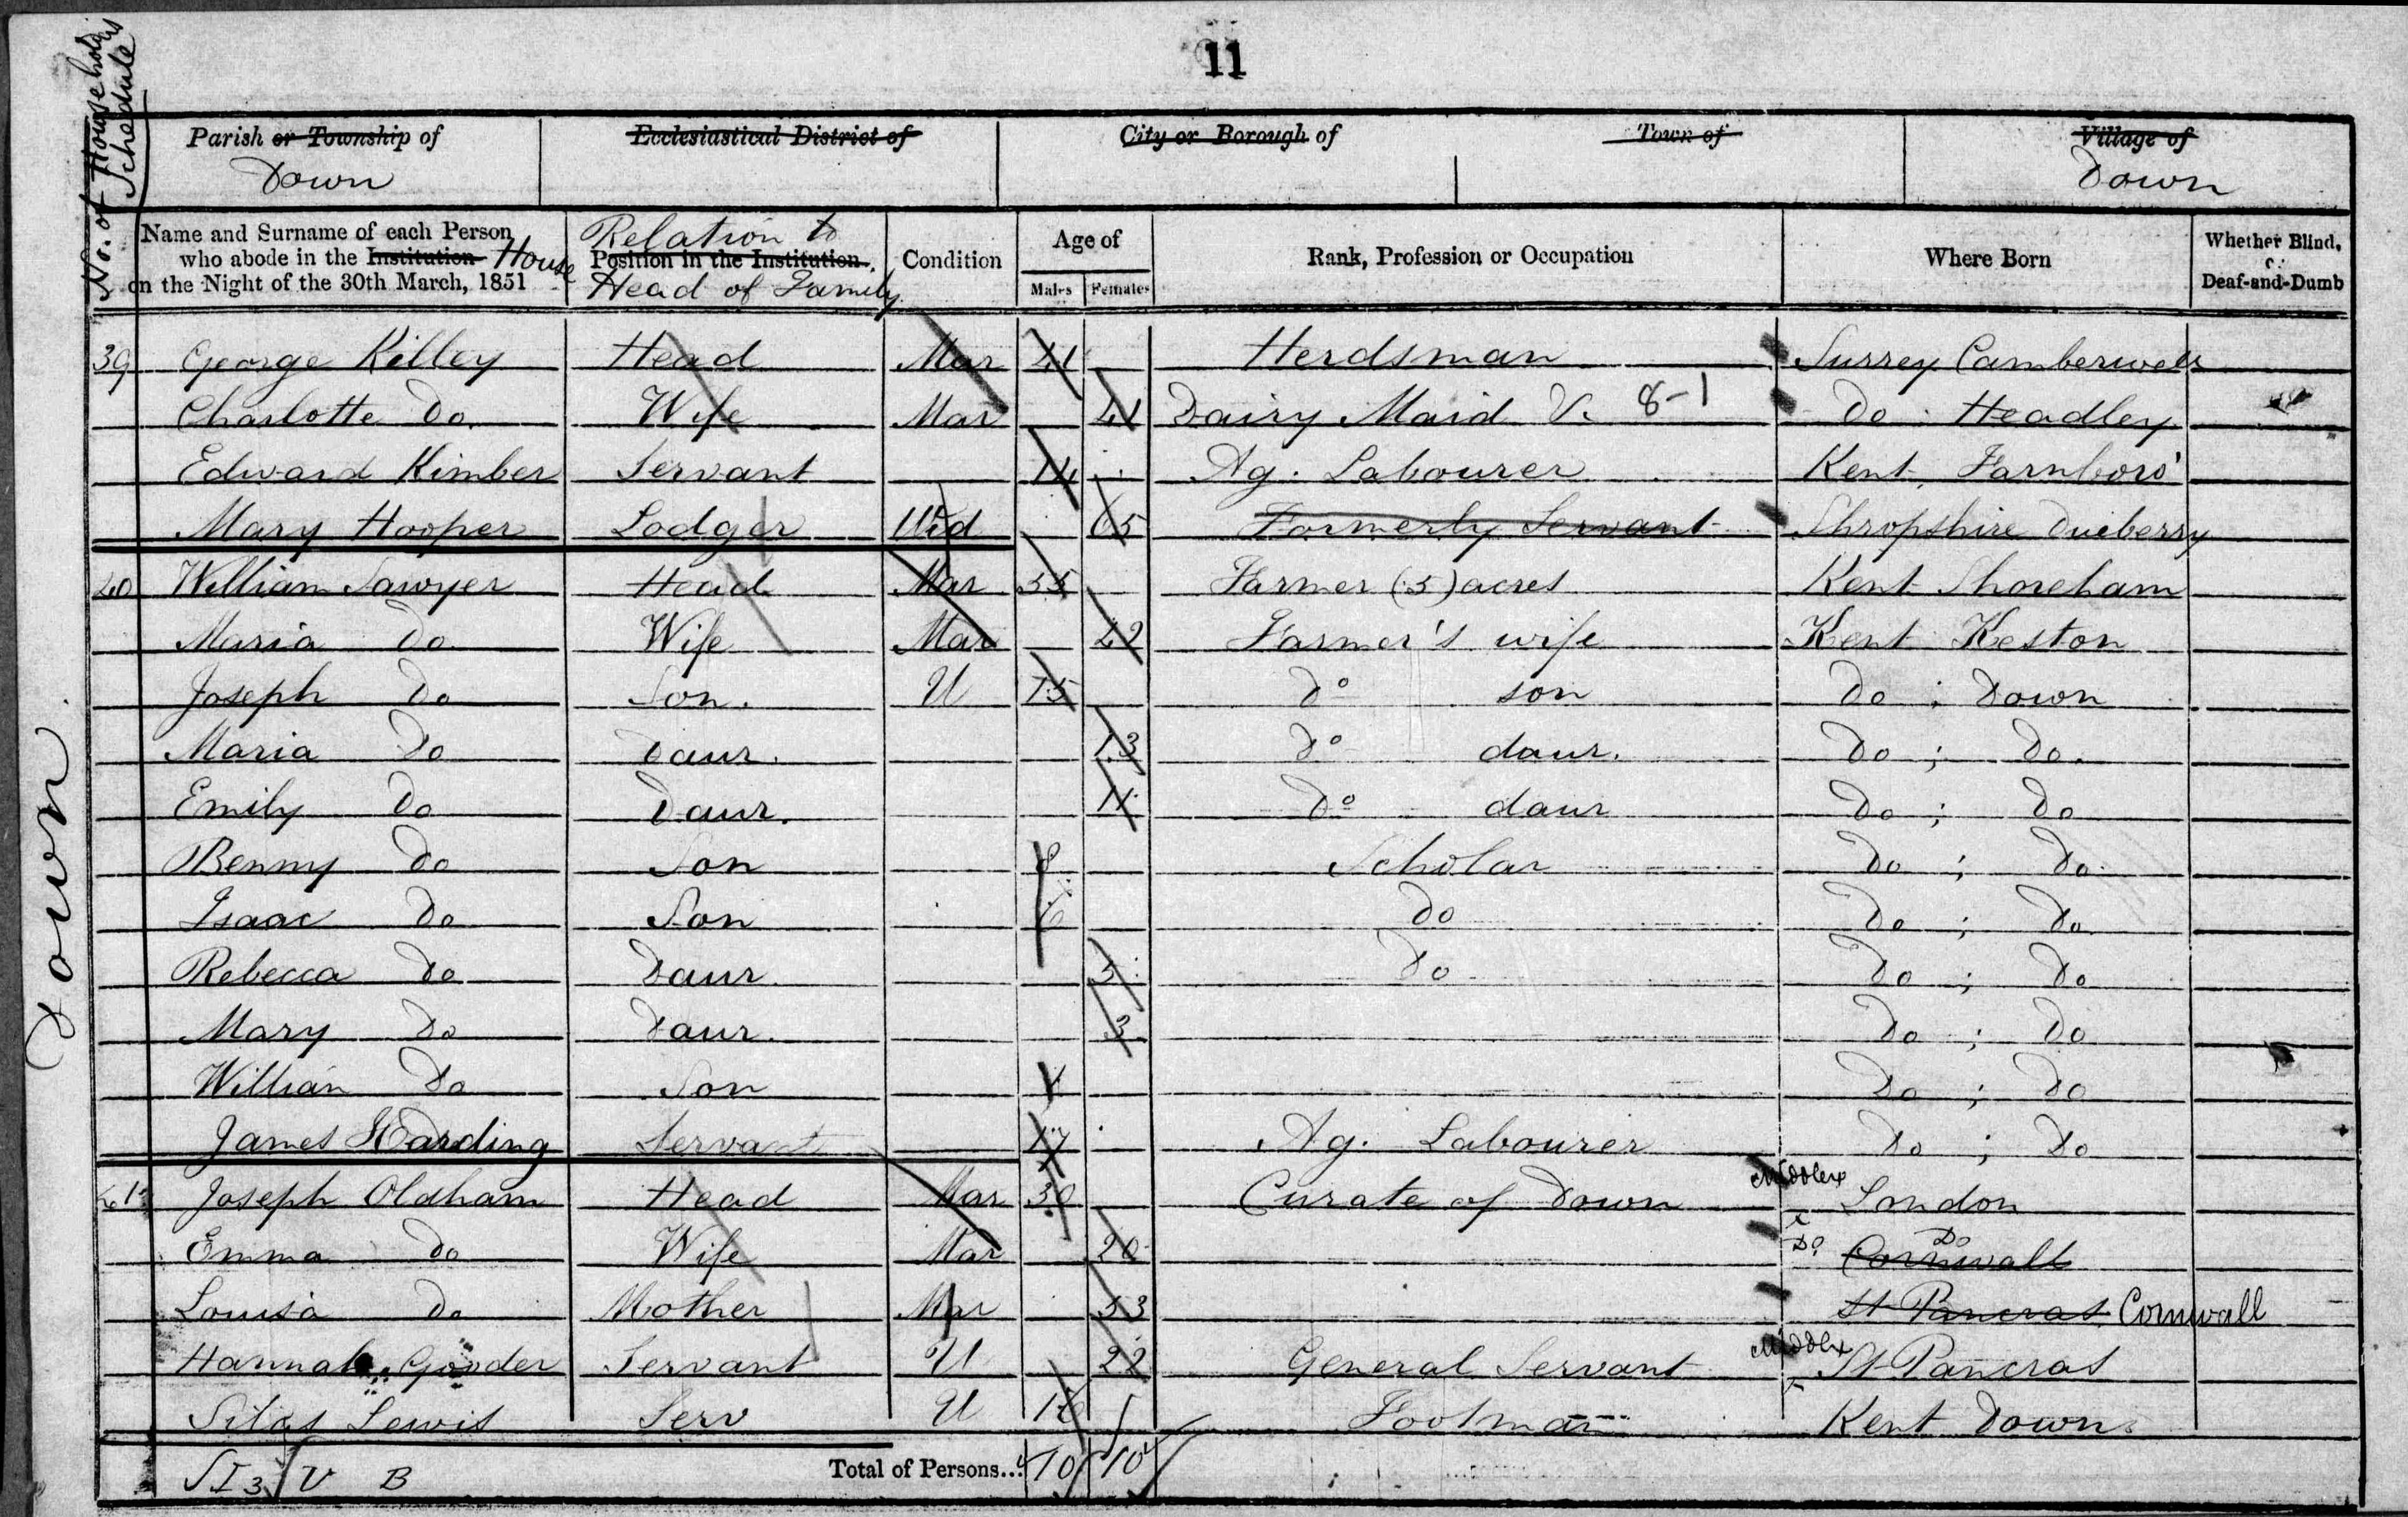 11
No. of Householder's Schedule
Parish or Township of Down
Ecclesiastical District of
City or Borough of
Town of
Village of Down
Name and Surname of each Person who abode in the Institution House on the Night of the 30th March, 1851
Relation to Position in the Institution. Head of Family
Condition
Age of
Males Females
Rank, Profession or Occupation
Where Born
Whether Blind, or Deaf-and-Dumb
Down
39 George Killey Head Mar 41 Herdsman Surrey Camberwell
Charlotte Do. Wife Mar 41 Dairy Maid V. 8-1 Do Headley
Edward Kimber Servant 14 Ag. Labourer Kent, Farnboro'
Mary Hooper Lodger Wid 65 Formerly Servant Shropshire
40 William Sawyer Head Mar 55 Farmer (5) acres Kent Shoreham
Maria Do Wife Mar 42 Farmer's wife Kent Keston
Joseph Do Son. U 15 Do son Do ; Down
Maria Do Daur. 13 Do daur. Do ; Do.
Emily Do Daur. 11 Do daur Do ; Do
Benny Do Son 8 Scholar Do ; Do
Isaac Do Son 6 Do Do ; Do
Rebecca Do Daur. 5 Do Do ; Do
Mary Do Daur. 3 Do ; Do
William Do Son 1 Do ; Do
James Harding Servant 17 Ag. Labourer Do ; Do
41 Joseph Oldham Head Mar 30 Curate of Down Middlex London
Emma Do Wife Mar 20 Do Do Cornwall
Louisa Do Mother Mar 53 St Pancras Cornwall
Hannah Gooder Servant U 22 General Servant Middlex St Pancras
Silas Lewis Serv U 16 Footman Kent Down
SI3 / U B Total of Persons... 10 10